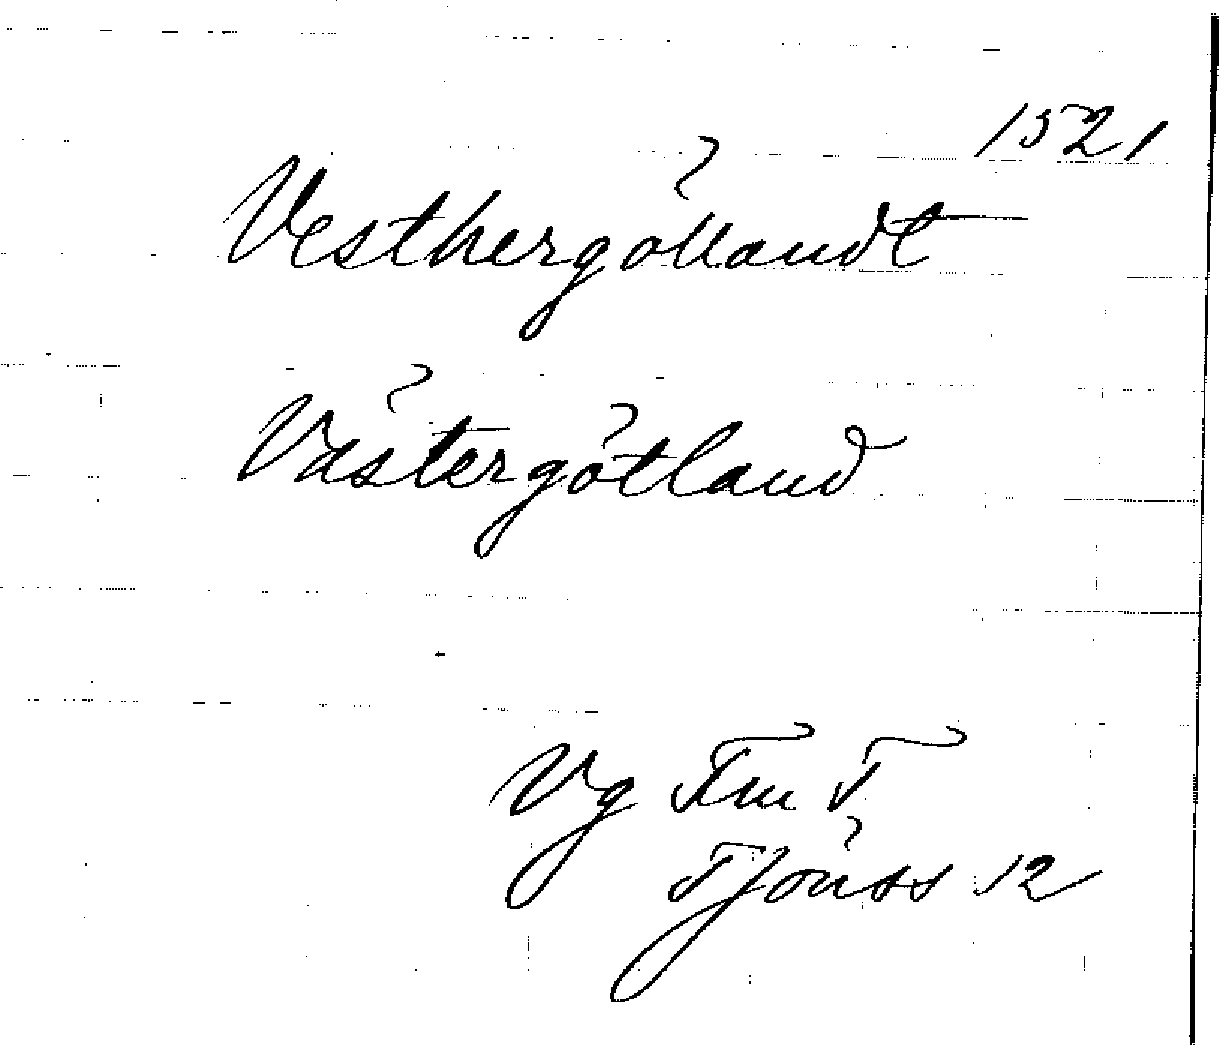 1521
Vesthergöllandt
Västergötland
Vg Fru F
Fjönss 12